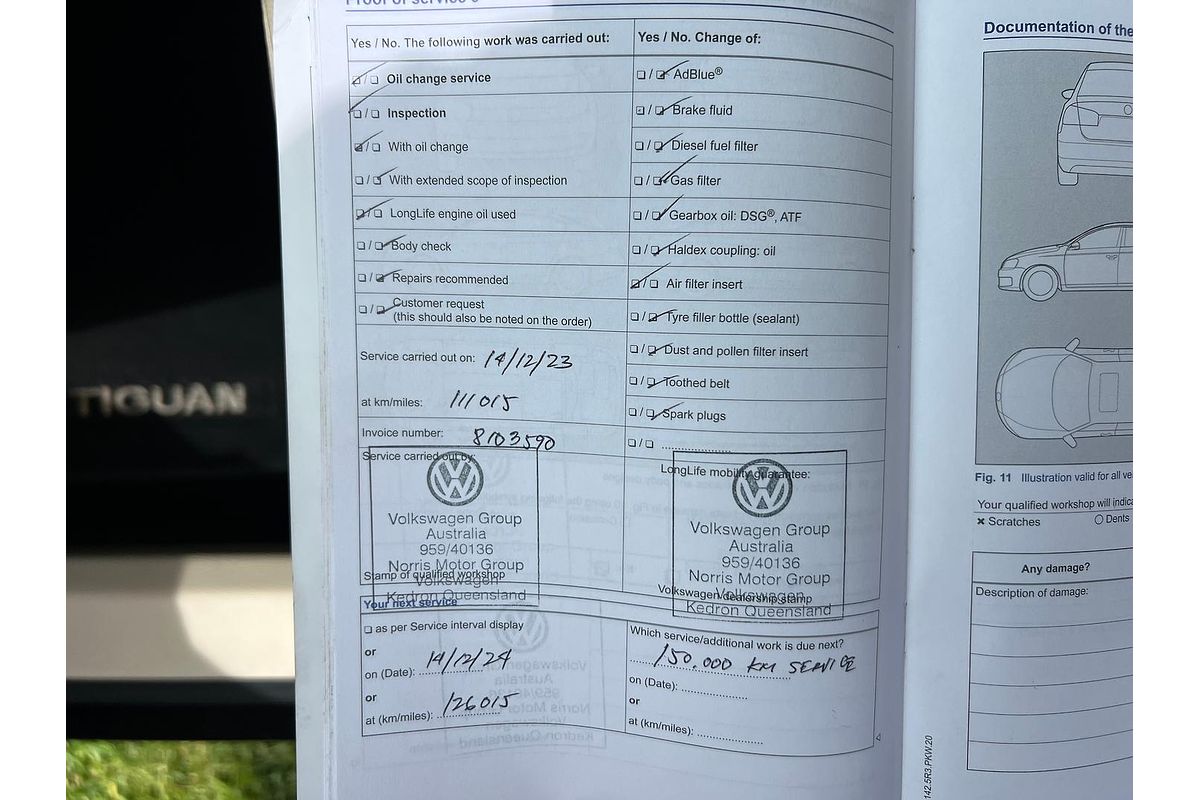 TIGUAN
Yes / No. The following work was carried out:
❏ / ❏ Oil change service
❏ / ❏ Inspection
❏ / ❏ With oil change
❏ / ❏ With extended scope of inspection
❏ / ❏ LongLife engine oil used
❏ / ❏ Body check
❏ / ❏ Repairs recommended
❏ / ❏ Customer request
(this should also be noted on the order)
Service carried out on: 14/12/23
at km/miles: 111015
Invoice number: 8103590
Service carried out by:
Volkswagen Group
Australia
959/40136
Norris Motor Group
Stamp of qualified workshop
Volkswagen
Kedron Queensland
Yes / No. Change of:
❏ / ❏ AdBlue®
❏ / ❏ Brake fluid
❏ / ❏ Diesel fuel filter
❏ / ❏ Gas filter
❏ / ❏ Gearbox oil: DSG®, ATF
❏ / ❏ Haldex coupling: oil
❏ / ❏ Air filter insert
❏ / ❏ Tyre filler bottle (sealant)
❏ / ❏ Dust and pollen filter insert
❏ / ❏ Toothed belt
❏ / ❏ Spark plugs
❏ / ❏ ....................
LongLife mobility guarantee:
Volkswagen Group
Australia
959/40136
Norris Motor Group
Volkswagen
Volkswagen dealership stamp
Kedron Queensland
Your next service
❏ as per Service interval display
or
on (Date): 14/12/24
or
at (km/miles): 126015
Which service/additional work is due next?
150.000 KM SERVICE
on (Date): ....................
or
at (km/miles): ....................
Documentation of the
Fig. 11 Illustration valid for all ve
Your qualified workshop will indica
✖ Scratches
○ Dents
Any damage?
Description of damage:
142.5R3.PKW.20